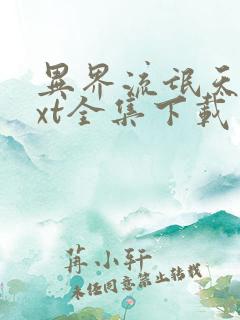 異界流氓天
xt全集下載
苒小轩
未经同意禁止转载